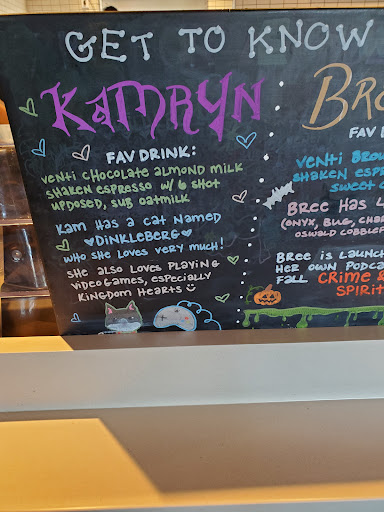 GET TO KNOW
KAMRYN
FAV DRINK:
VENTI CHOCOLATE ALMOND MILK
SHAKEN ESPRESSO W/ 6 SHOT
UPDOSED, SUB OATMILK
KAM HAS A CAT NAMED
♥DINKLEBERG♥
WHO SHE LOVES VERY MUCH!
SHE ALSO LOVES PLAYING
VIDEO GAMES, ESPECIALLY
KINGDOM HEARTS
FAV
VENTI
SHAKEN
SWEET
BREE HAS
(ONYX,
OSWALD
BREE IS
HER OWN
FALL CRIME &